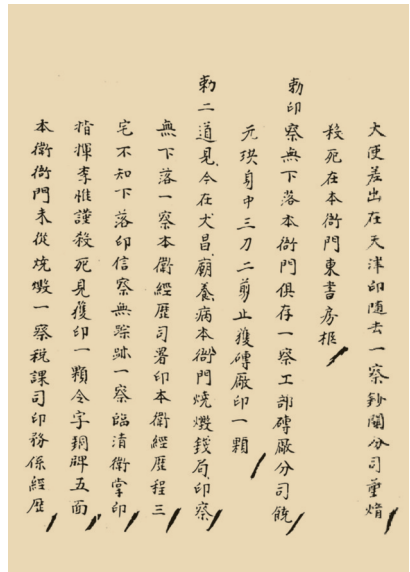 大使差出在天津印随去一察鈔關分司董煟
殺死在本衙門東書房柩
勅印察無下落本衙門俱存一察工部磚厰分司饒
元珙身中三刀二剪止獲磚厰印一顆
勅二道見今在文昌廟養病本衙門焼燬錢局印察
無下落一察本衛經歴司署印本衛經歴程三
宅不知下落印信察無踪跡一察臨清衛掌印
指揮李惟謹殺死見獲印一顆令字銅牌五面
本衛衙門未從焼燬一察税課司印務係經歴